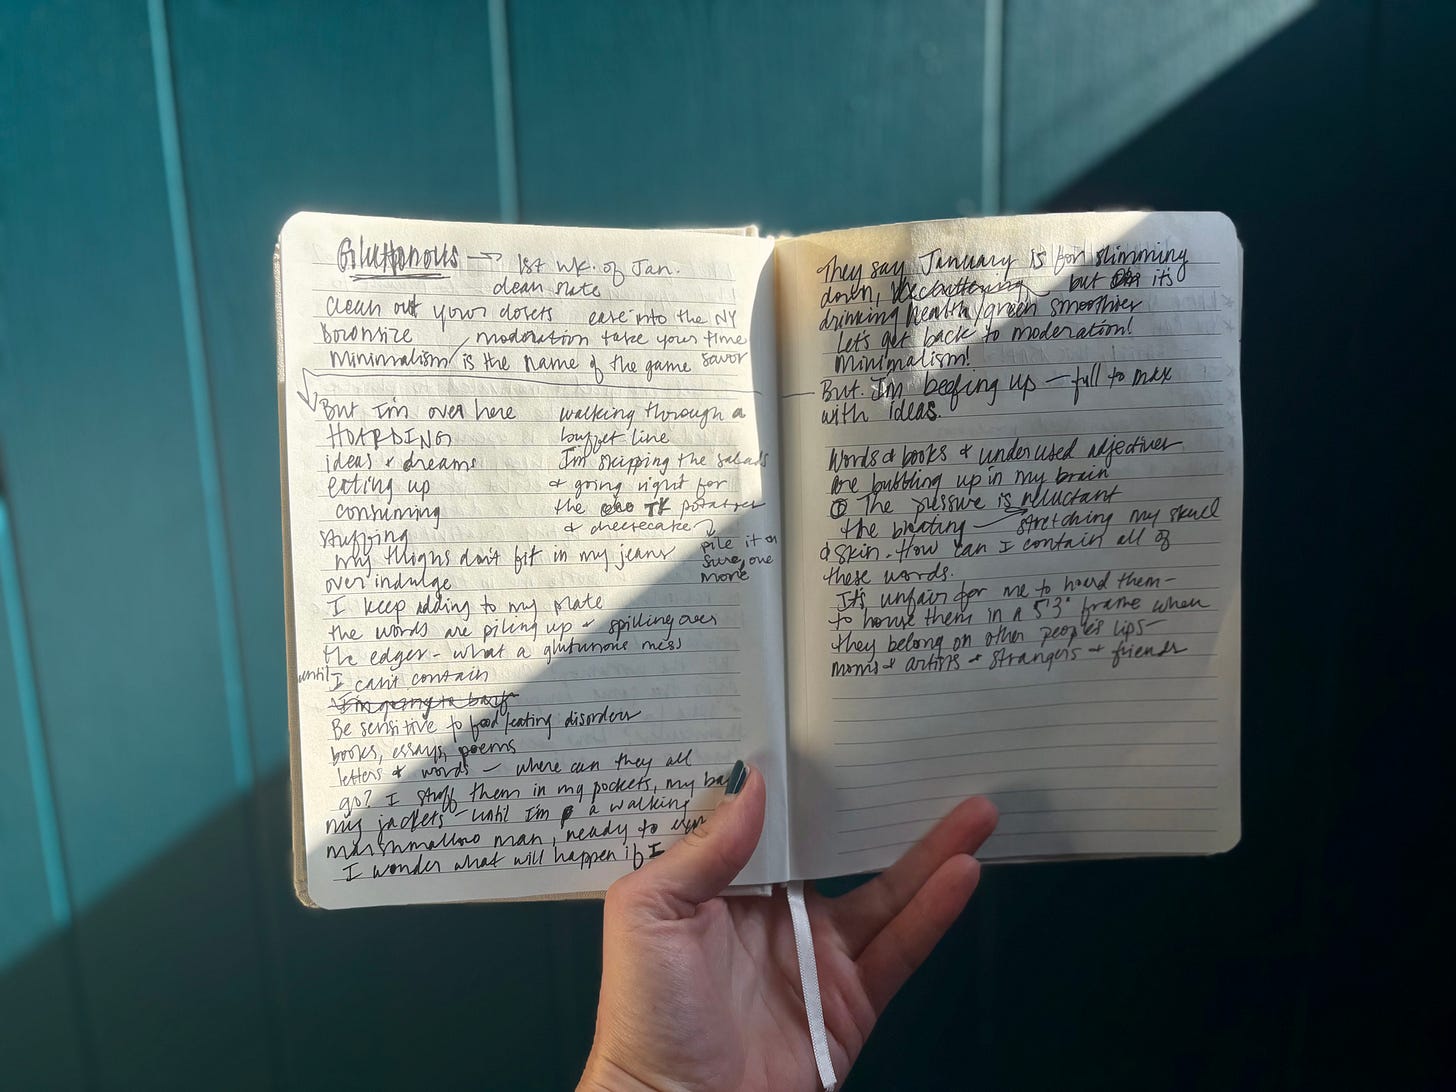 Gluttonous → 1st wk. of Jan.
clean slate
Clean out your closets ease into the NY
Downsize / moderation take your time
Minimalism is the name of the game savor
But I'm over here
HOARDING
ideas & dreams
eating up
consuming
stuffing
walking through a
buffet line
I'm skipping the salads
& going right for
the potatoes
& cheesecake
pile it on
sure, one
more
my thighs don't fit in my jeans
over indulge
I keep adding to my plate
the words are piling up & spilling over
the edges - what a glutunous mess
until I can't contain
I'm going to barf
Be sensitive to food/eating disorders
books, essays, poems
letters & words - where can they all
go? I stuff them in my pockets, my
my jackets - until I'm a walking
marshmallow man, ready to
I wonder what will happen if I
They say January is for slimming
down, decluttering but it's
drinking health/green smoothies
Let's get back to moderation!
Minimalism!
But I'm beefing up - full to max
with ideas.
Words & books & underused adjectives
are bubbling up in my brain
The pressure is reluctant
the bloating → stretching my skull
& skin. How can I contain all of
these words.
It's unfair for me to hoard them-
to house them in a 5'3" frame when
they belong on other people's lips-
moms & artists & strangers & friends